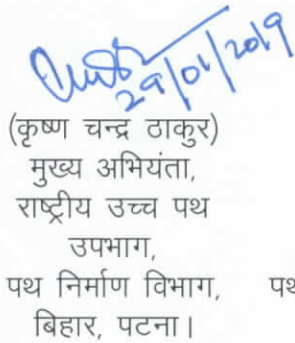 29/01/2019
(कृष्ण चन्द्र ठाकुर)
मुख्य अभियंता,
राष्ट्रीय उच्च पथ
उपभाग,
पथ निर्माण विभाग, पथ
बिहार, पटना।